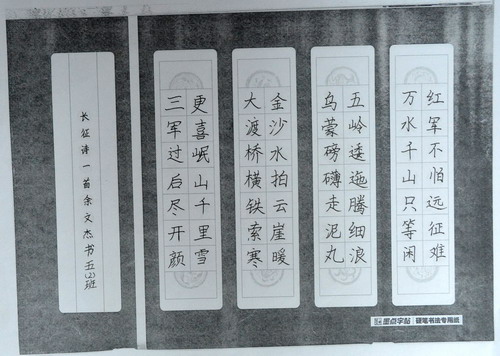 红军不怕远征难
万水千山只等闲
五岭逶迤腾细浪
乌蒙磅礴走泥丸
金沙水拍云崖暖
大渡桥横铁索寒
更喜岷山千里雪
三军过后尽开颜
长征诗一首余文杰书五(2)班
墨点字帖 硬笔书法专用纸